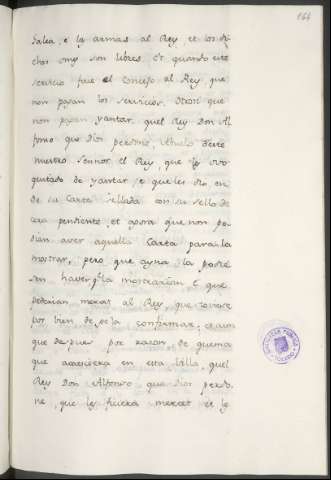 166
Salea, e la armas al Rey et los di-
chos omes son libres. Et quando este
servicio fue el Concejo al Rey, que
non pagan los servicios. Otrosi que
non pagan yantar, quel Rey Don Al-
fonso que Dios perdone, Abuelo deste
nuestro Sennor el Rey, que los ovo
quitado de yantar, e que les dio en-
de su Carta Sellada con su Sello de
cera pendiente, et agora que non po-
dian aver aquella Carta para la
mostrar, pero que ayna la podrie
sen haver, e la mostrarian: e que
pedaian merced al Rey, que toviere
por bien de gela confirmar, et aun
que despues por razon de guerra
que acaesciera en esta Villa, quel
Rey Don Alfonso, que Dios perdo-
ne, que les ficiera merced et les